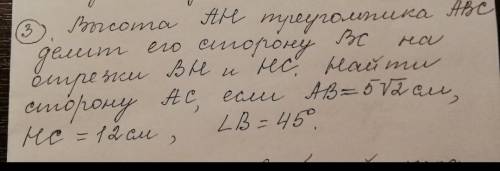 ③. Высота АН треугольника АВС
делит его сторону ВС на
отрезки ВН и НС. Найти
сторону АС, если АВ = 5√2 см,
НС = 12 см, ∠В = 45°.